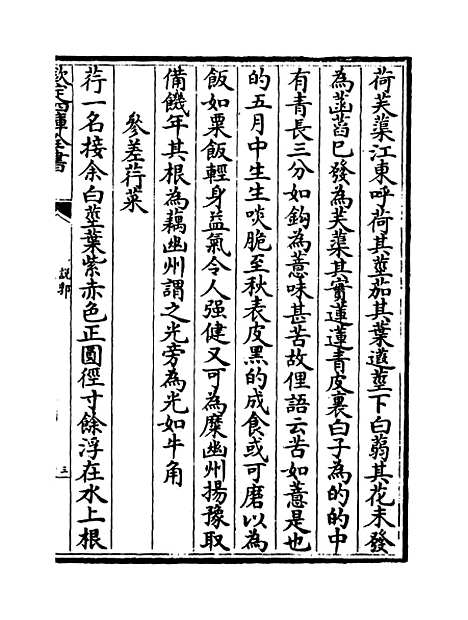 荷芙蕖江東呼荷其莖茄其葉蕸莖下白蒻其花未發
為菡萏已發為芙蕖其實蓮蓮青皮裏白子為的的中
有青長三分如鈎為薏味甚苦故俚語云苦如薏是也
的五月中生生啖脆至秋表皮黑的成食或可磨以為
飯如粟飯輕身益氣令人强健又可為糜幽州揚豫取
備饑年其根為藕幽州謂之光旁為光如牛角
參差荇菜
荇一名接余白莖葉紫赤色正圓徑寸餘浮在水上根
欽定四庫全書
說郛
三